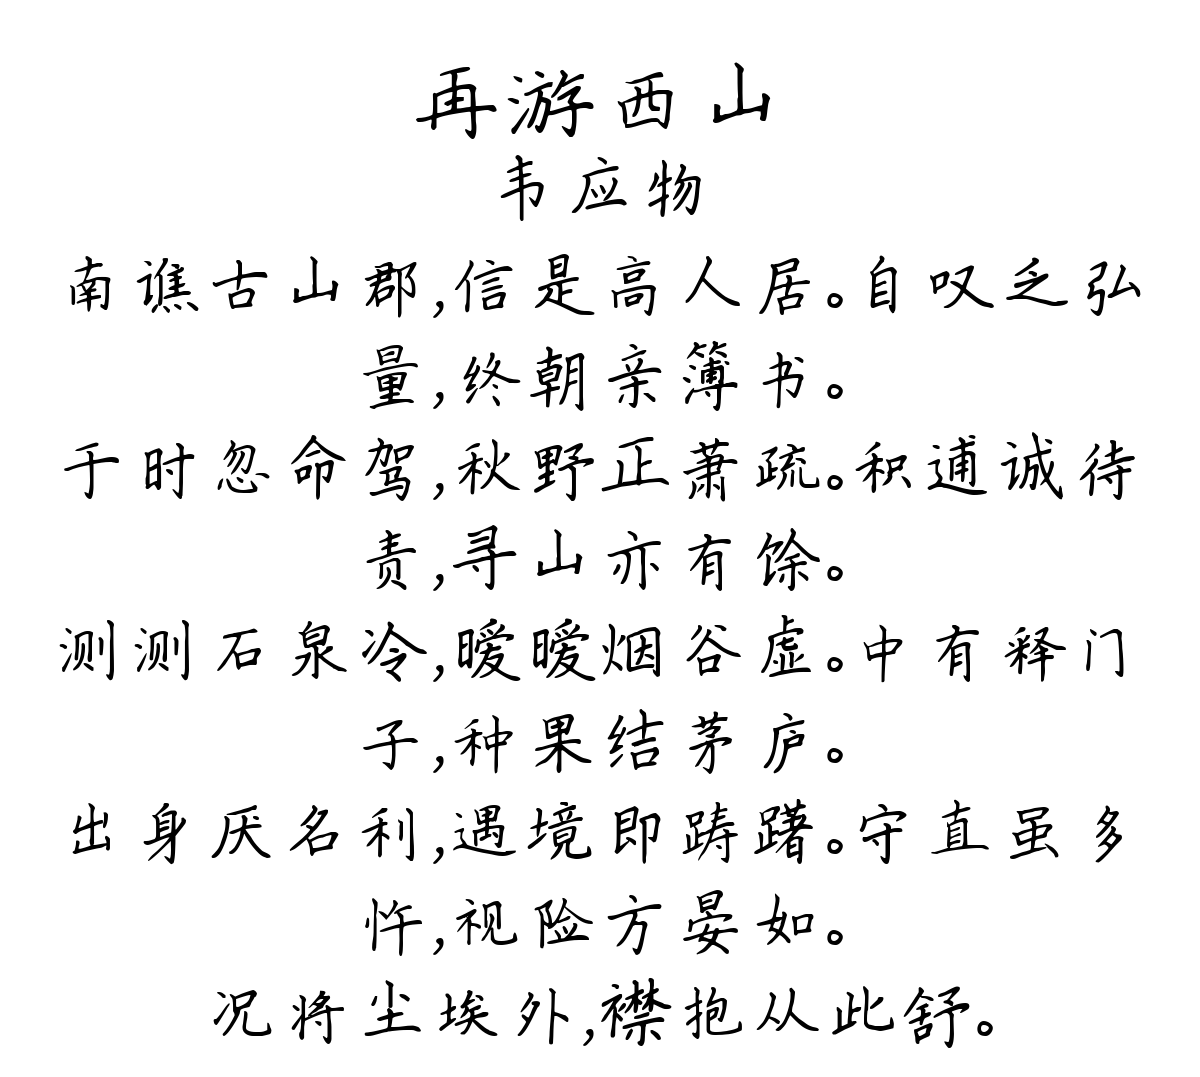 再游西山
韦应物
南谯古山郡,信是高人居。自叹乏弘
量,终朝亲簿书。
于时忽命驾,秋野正萧疏。积逋诚待
责,寻山亦有馀。
测测石泉冷,暧暧烟谷虚。中有释门
子,种果结茅庐。
出身厌名利,遇境即踌躇。守直虽多
忤,视险方晏如。
况将尘埃外,襟抱从此舒。